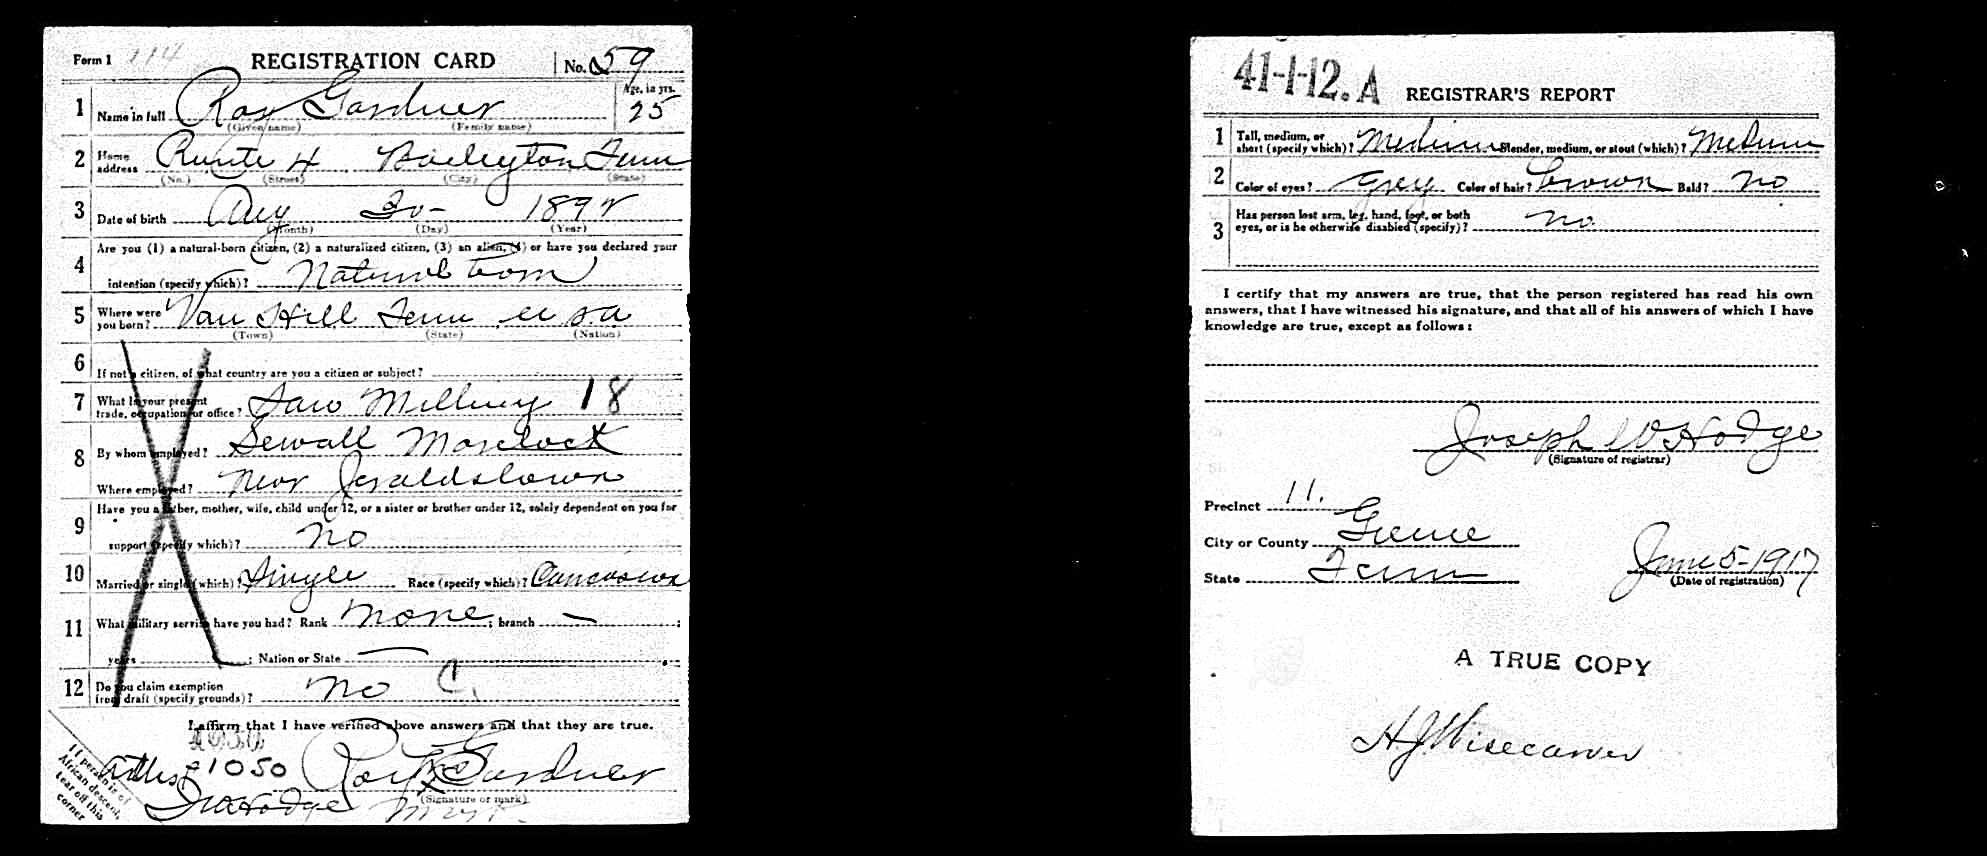 Form 1 114 REGISTRATION CARD No. 59
1 Name in full Roy Gardner Age, in yrs. 25
(Given name) (Family name)
2 Home address Route 4 Baileyton Tenn
(No.) (Street) (City) (State)
3 Date of birth Aug 30 - 189
(Month) (Day) (Year)
4 Are you (1) a natural-born citizen, (2) a naturalized citizen, (3) an alien, (4) or have you declared your
intention (specify which)? Natural born
5 Where were you born? Van Hill Tenn U S a
(Town) (State) (Nation)
6 If not a citizen, of what country are you a citizen or subject?
7 What is your present trade, occupation, or office? Saw Milling 18
8 By whom employed? Sewall Morelock
Where employed? Near Jeraldstown
9 Have you a father, mother, wife, child under 12, or a sister or brother under 12, solely dependent on you for
support (specify which)? No
10 Married or single (which)? Single Race (specify which)? Caucasian
11 What military service have you had? Rank None ; branch — ;
years ; Nation or State —
12 Do you claim exemption from draft (specify grounds)? No C.
I affirm that I have verified above answers and that they are true.
1050
Roy his Gardner
(Signature or mark)
J W Hodge mark
If person is of
African descent,
tear off this
corner
41-1-12. A REGISTRAR'S REPORT
1 Tall, medium, or short (specify which)? Medium Slender, medium, or stout (which)? Medium
2 Color of eyes? Grey Color of hair? brown Bald? No
3 Has person lost arm, leg, hand, foot, or both eyes, or is he otherwise disabled (specify)? No.
I certify that my answers are true, that the person registered has read his own
answers, that I have witnessed his signature, and that all of his answers of which I have
knowledge are true, except as follows:
Joseph W Hodge
(Signature of registrar)
Precinct 11.
City or County Greene
State Tenn
June 5 - 1917
(Date of registration)
A TRUE COPY
H J Wisecarver